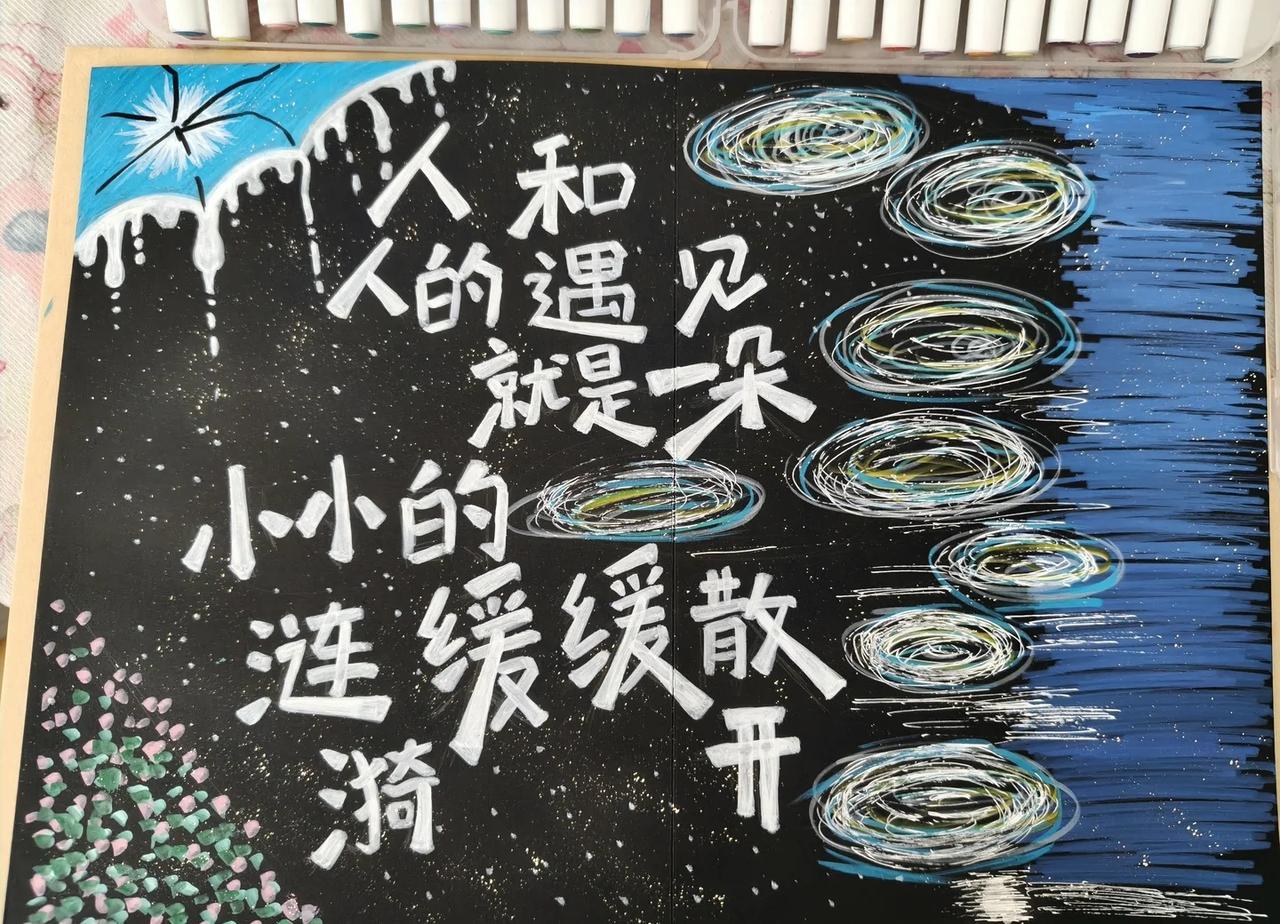 人和
人的遇见
就是一朵
小小的
涟缓缓散
漪开